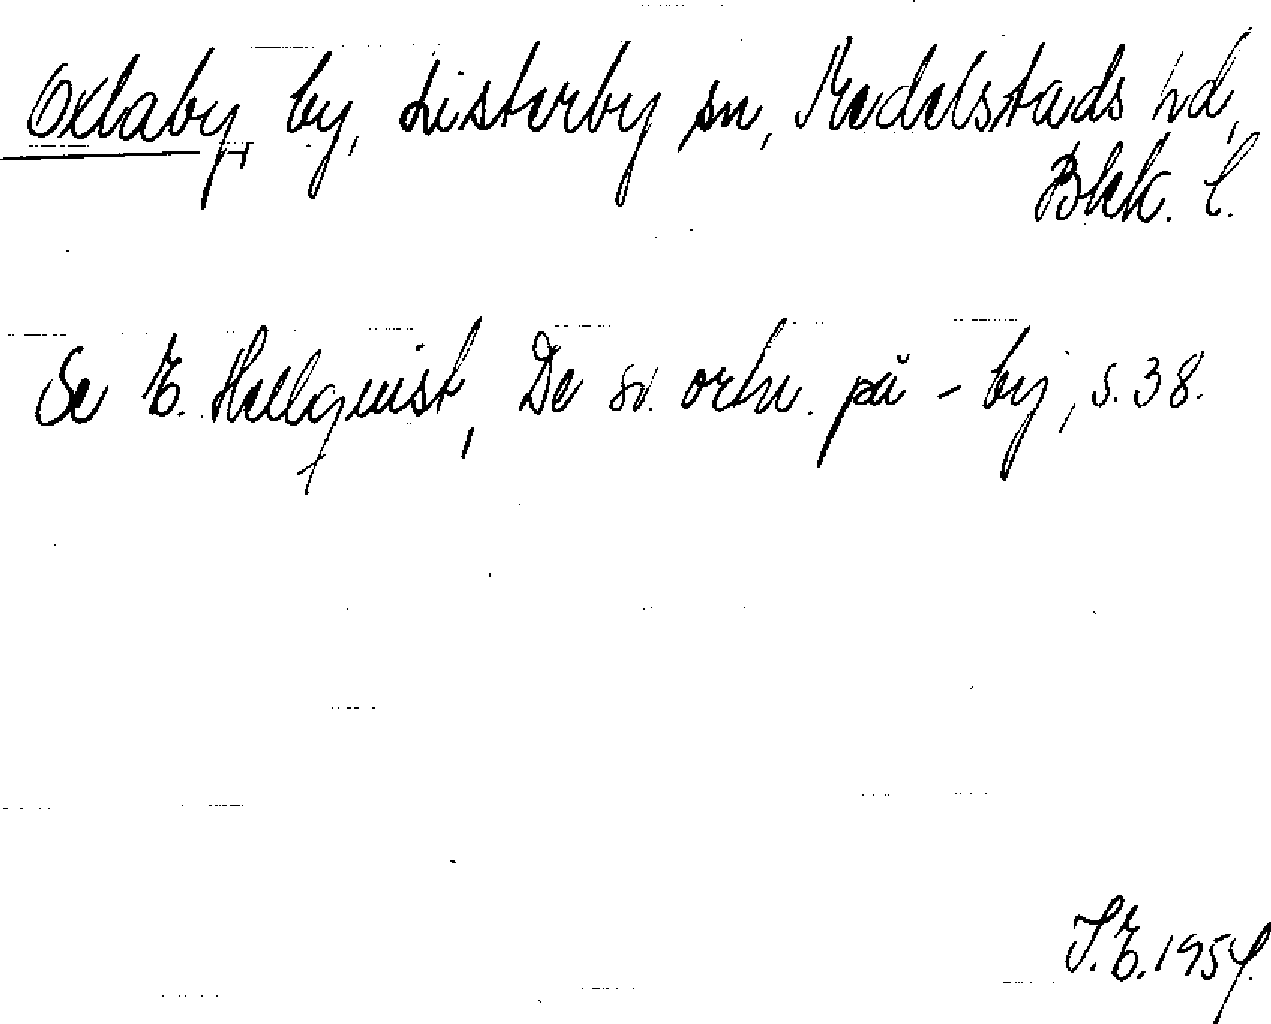 Oxlaby, by, Listerby sn, Medelstads hd,
Blek. l.
Se E. Hellquist, De sv. ortn. på -by, s. 38.
I. E. 1954.